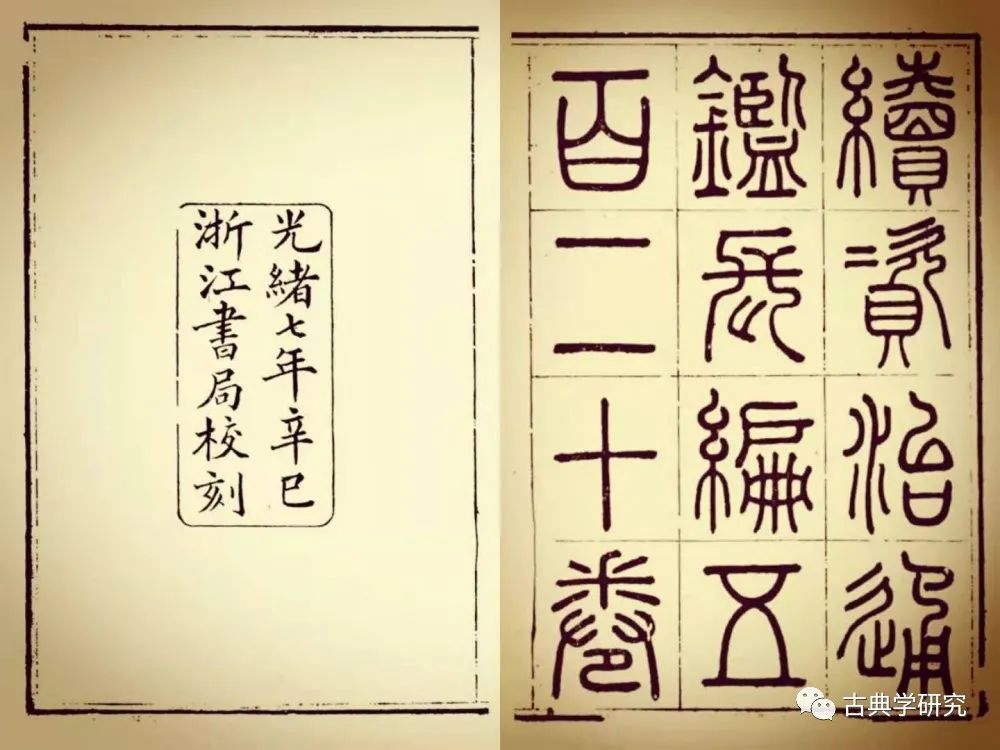 續資治通
鑑長編五
百二十卷
光緒七年辛巳
浙江書局校刻
古典学研究